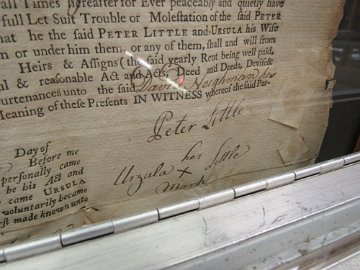 all Times hereafter for Ever peaceably and quietly have
full Let Suit Trouble or Molestation of the said PETER
that he the said PETER LITTLE and URSULA his Wife
or under him them, or any of them, shall and will from
Heirs & Assigns (the said yearly Rent being well paid,
& reasonable Act and Acts, Deed and Deeds, Devise&
urtenances unto the said David Neighman his
Meaning of these Presents IN WITNESS whereof the said Par-
Peter Little
Day of
Before me
personally came
be his Act and
came URSULA
voluntarily became
est made known unto
her
Urzula + Little
Mark